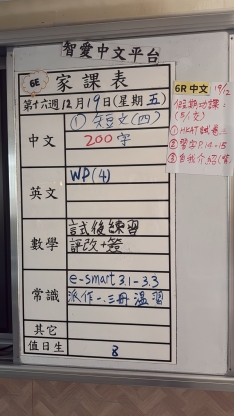 智愛中文平台
6E 家課表
第十六週12月19日(星期五)
中文 ① 短文(四)
200字
英文 WP(4)
數學 試後練習
評改+簽
常識 e-smart 3.1-3.3
派作一.三冊 溫習
其它
值日生 8
6R 中文 19/12
假期功課:
① HKAT試卷
② 習字P.14-15
③ 自我介紹